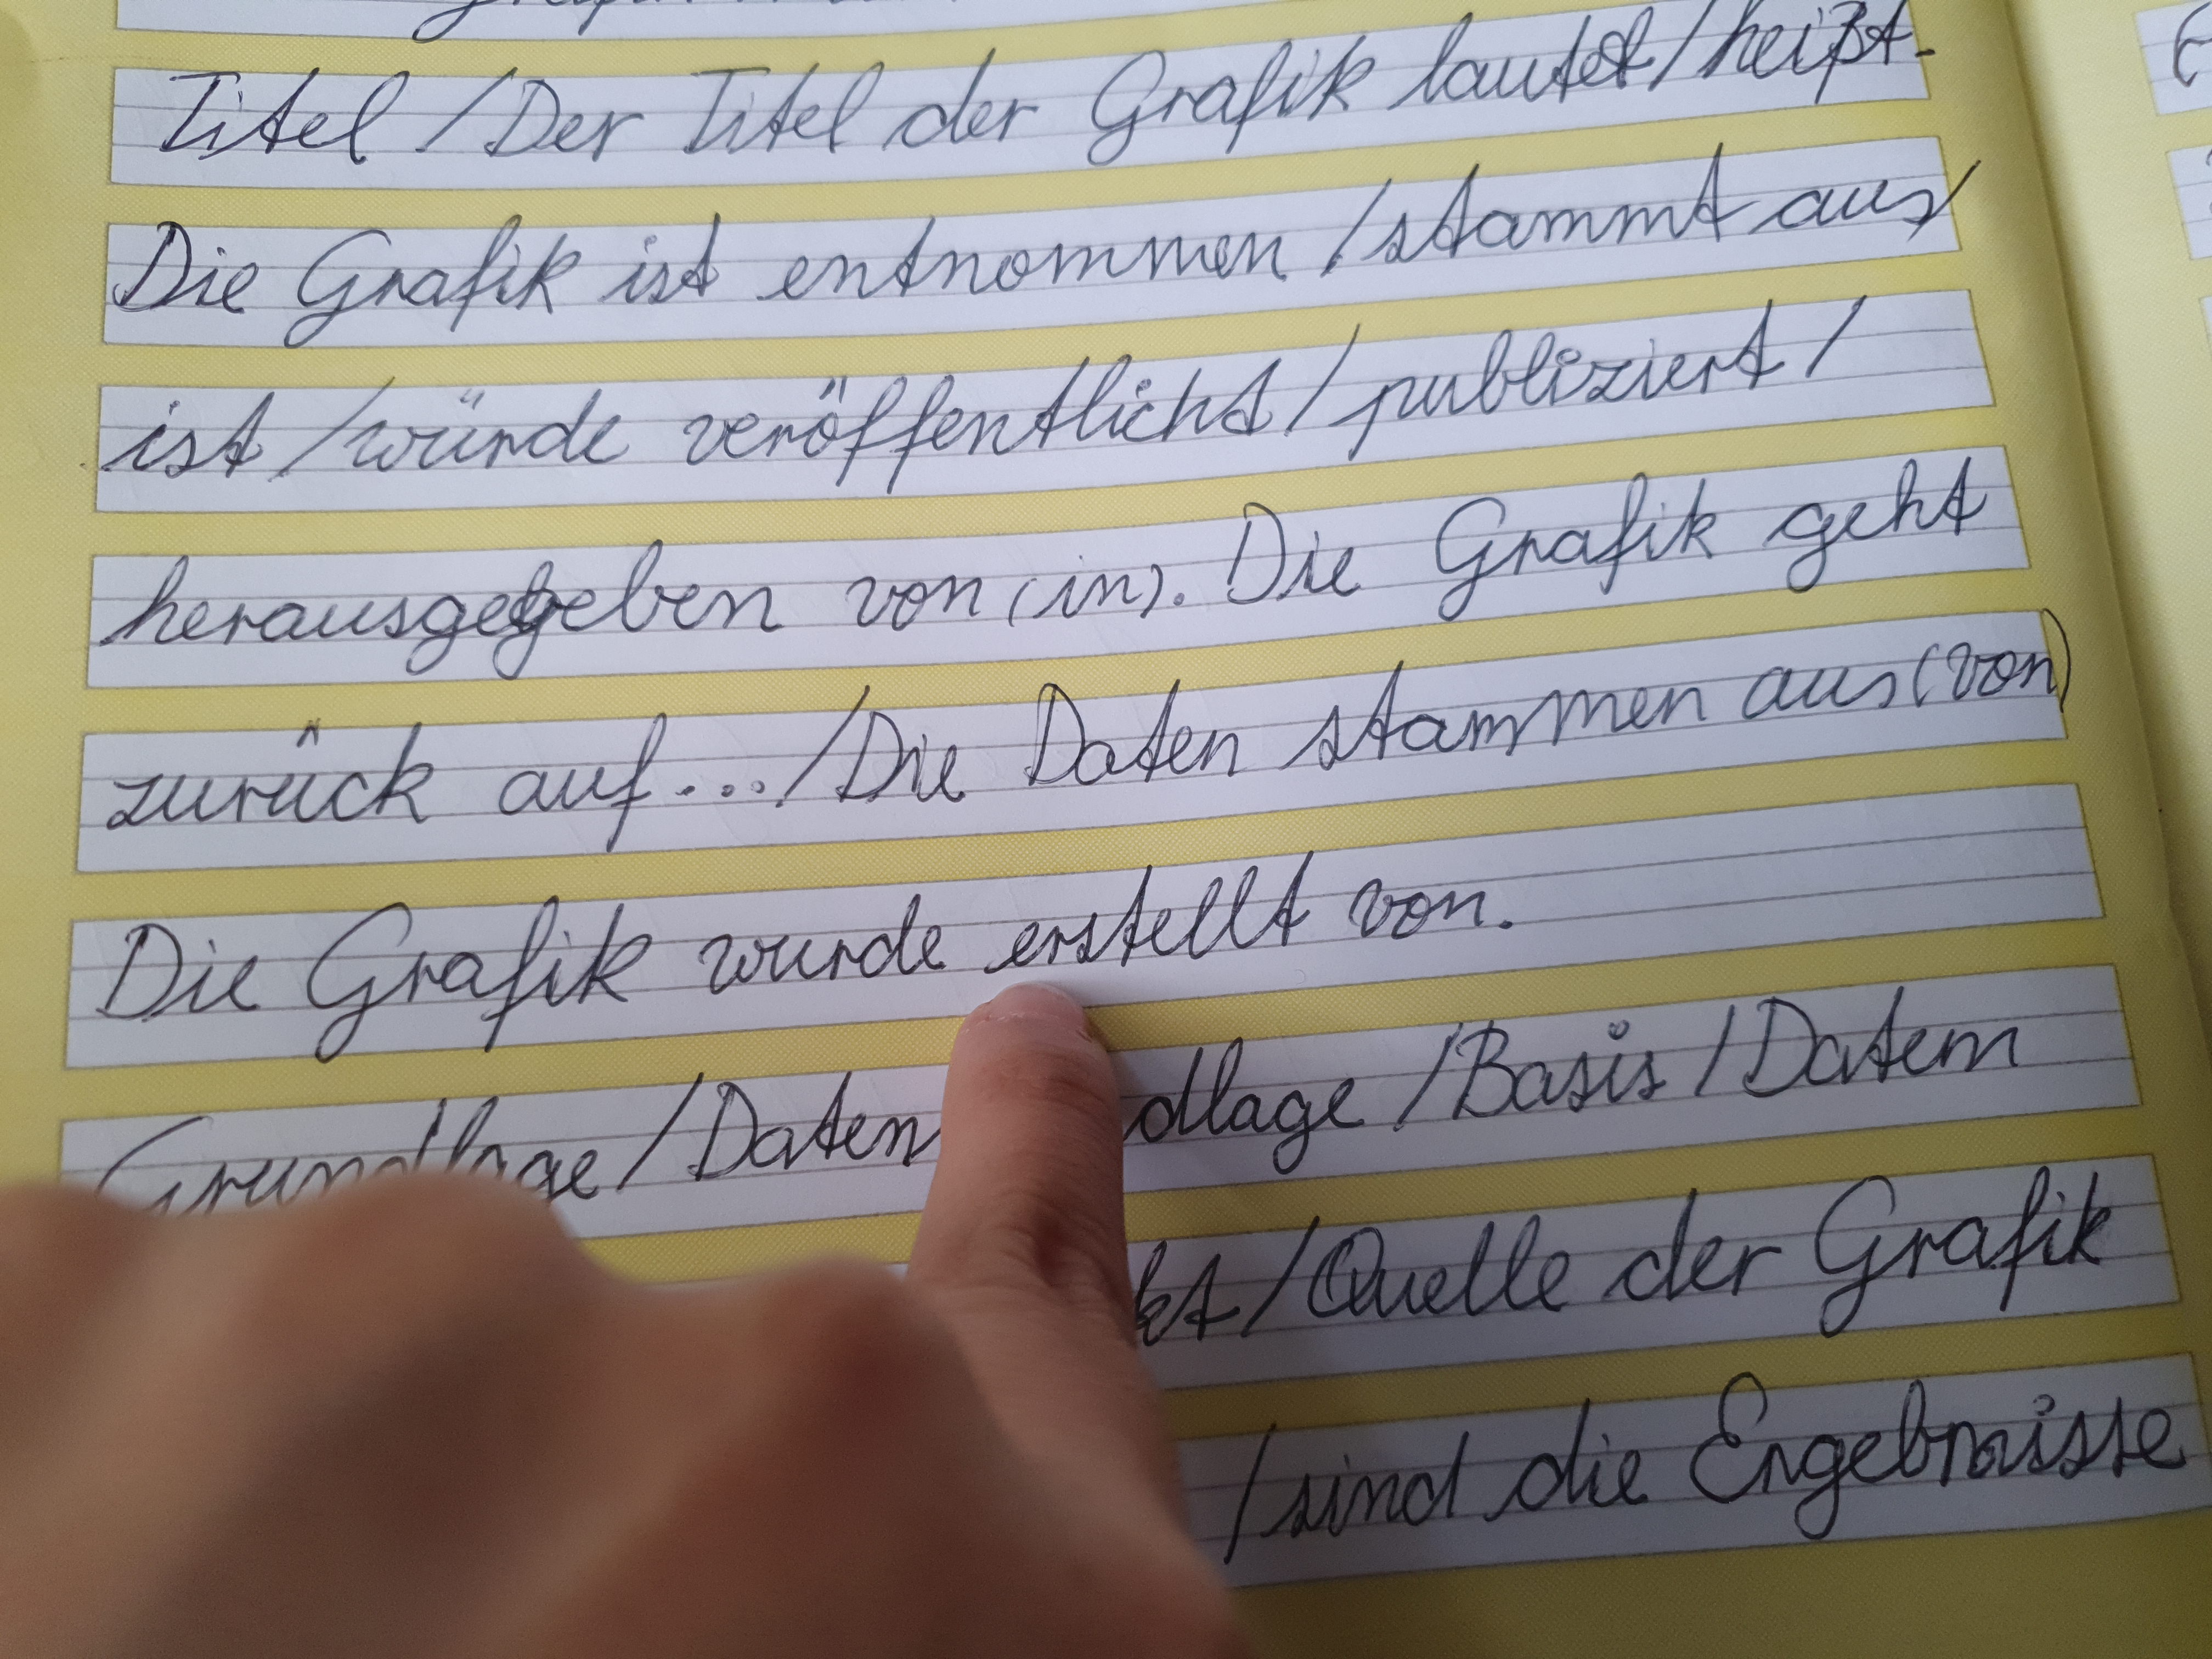 Titel / Der Titel der Grafik lautet / heißt.
Die Grafik ist entnommen / stammt aus /
ist / würde veröffentlicht / publiziert /
herausgegeben von (in). Die Grafik geht
zurück auf... / Die Daten stammen aus (von)
Die Grafik wurde erstellt von.
Grundlage / Daten dlage / Basis / Datem
kt / Quelle der Grafik
/ sind die Ergebnisse